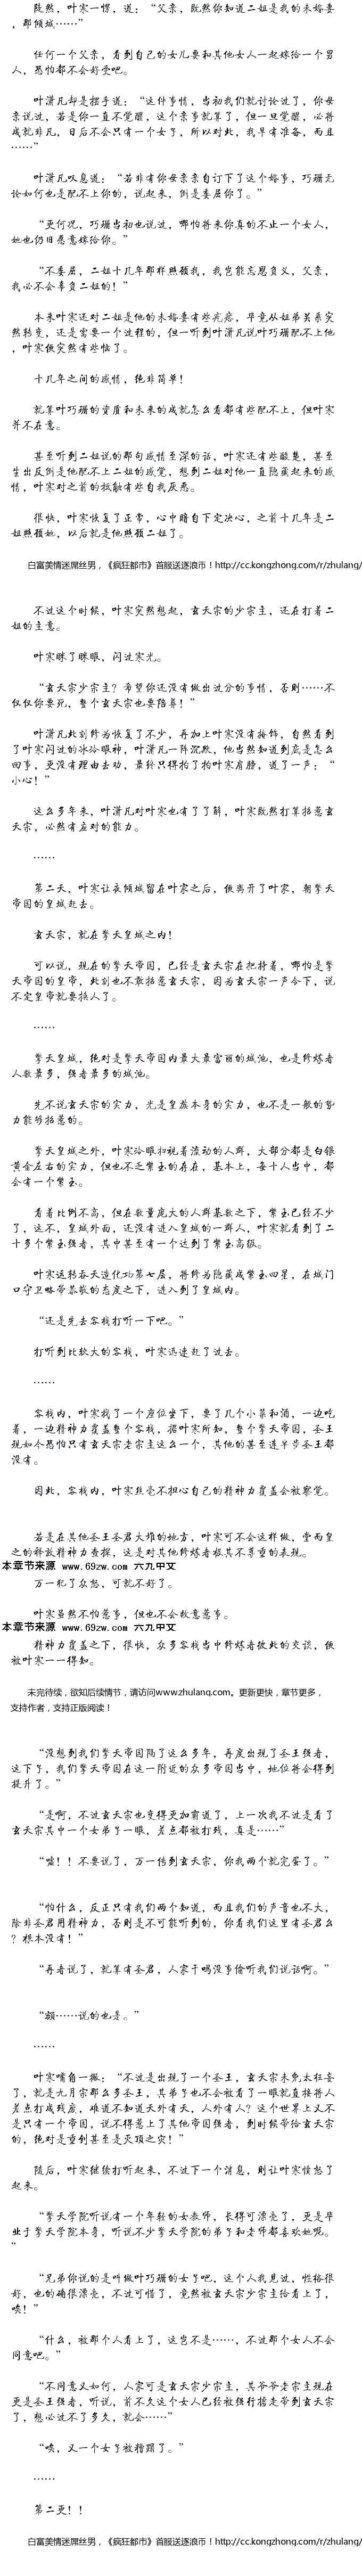 陡然，叶寒一愣，道：“父亲，既然你知道二姐是我的未婚妻
，那倾城……”
任何一个父亲，看到自己的女儿要和其他女人一起嫁给一个男
人，恐怕都不会好受吧。
叶潇凡却是摆手道：“这件事情，当初我们就讨论过了，你母
亲说过，若是你一直不觉醒，这个亲事就算了，但一旦觉醒，必将
成就非凡，日后不会只有一个女子，所以对此，我早有准备，而且
……”
叶潇凡叹息道：“若非有你母亲亲自订下了这个婚事，巧珊无
论如何也是配不上你的，说起来，倒是委屈你了。”
“更何况，巧珊当初也说过，哪怕将来你真的不止一个女人，
她也仍旧愿意嫁给你。”
“不委屈，二姐十几年那样照顾我，我岂能忘恩负义，父亲，
我必不会辜负二姐的！”
本来叶寒还对二姐是他的未婚妻有些疙瘩，毕竟从姐弟关系突
然转变，还是需要一个过程的，但一听到叶潇凡说叶巧珊配不上他
，叶寒便突然有些恼了。
十几年之间的感情，绝非简单！
就算叶巧珊的资质和未来的成就怎么看都有些配不上，但叶寒
并不在意。
甚至听到二姐说的那句感情至深的话，叶寒还有些酸楚，甚至
生出反倒是他配不上二姐的感觉，想到二姐对他一直隐藏起来的感
情，叶寒对之前的抵触有些自我厌恶。
很快，叶寒恢复了正常，心中暗自下定决心，之前十几年是二
姐照顾她，以后就是他照顾二姐了。
白富美情迷屌丝男，《疯狂都市》首服送逐浪币！http://cc.kongzhong.com/r/zhulang/
不过这个时候，叶寒突然想起，玄天宗的少宗主，还在打着二
姐的主意。
叶寒眯了眯眼，闪过寒光。
“玄天宗少宗主？希望你还没有做出过分的事情，否则……不
仅仅你要死，整个玄天宗也要陪葬！”
叶潇凡此刻修为恢复了不少，再加上叶寒没有掩饰，自然看到
了叶寒闪过的冰冷眼神，叶潇凡一阵沉默，他当然知道到底是怎么
回事，更没有理由去劝，最终只得拍了拍叶寒肩膀，道了一声：“
小心！”
这么多年来，叶潇凡对叶寒也有了了解，叶寒既然打算招惹玄
天宗，必然有应对的能力。
……
第二天，叶寒让夜倾城留在叶家之后，便离开了叶家，朝擎天
帝国的皇城赶去。
玄天宗，就在擎天皇城之内！
可以说，现在的擎天帝国，已经是玄天宗在把持着，哪怕是擎
天帝国的皇帝，此刻也不敢招惹玄天宗，因为玄天宗一声令下，说
不定皇帝就要换人了。
……
擎天皇城，绝对是擎天帝国内最大最富丽的城池，也是修炼者
人数最多，强者最多的城池。
先不说玄天宗的实力，光是皇族本身的实力，也不是一般的势
力能够招惹的。
擎天皇城之外，叶寒冷眼扫视着流动的人群，大部分都是白银
黄金左右的实力，但也不乏紫玉的存在，基本上，每十人当中，都
会有一个紫玉。
看着比例不高，但在数量庞大的人群基数之下，紫玉已经不少
了，这不，皇城外面，还没有进入皇城的一群人，叶寒就看到了二
十多个紫玉强者，其中甚至有一个达到了紫玉高级。
叶寒运转吞天造化功第七层，将修为隐藏成紫玉四星，在城门
口守卫略带恭敬的态度之下，进入到了皇城内。
“还是先去客栈打听一下吧。”
打听到比较大的客栈，叶寒迅速赶了过去。
……
客栈内，叶寒找了一个座位坐下，要了几个小菜和酒，一边吃
着，一边精神力覆盖整个客栈，据叶寒所知，整个擎天帝国，圣王
现如今恐怕只有玄天宗老宗主这么一个，其他的甚至连半步圣王都
没有。
因此，客栈内，叶寒丝毫不担心自己的精神力覆盖会被察觉。
若是在其他圣王圣君大堆的地方，叶寒可不会这样做，堂而皇
之的释放精神力查探，这是对其他修炼者极其不尊重的表现。
本章节来源 www.69zw.com 六九中文
万一犯了众怒，可就不好了。
叶寒虽然不怕惹事，但也不会故意惹事。
本章节来源 www.69zw.com 六九中文
精神力覆盖之下，很快，众多客栈当中修炼者彼此的交谈，便
被叶寒一一得知。
未完待续，欲知后续情节，请访问www.zhulang.com。更新更快，章节更多，
支持作者，支持正版阅读！
“没想到我们擎天帝国隔了这么多年，再度出现了圣王强者，
这下子，我们擎天帝国在这一附近的众多帝国当中，地位将会得到
提升了。”
“是啊，不过玄天宗也变得更加霸道了，上一次我不过是看了
玄天宗其中一个女弟子一眼，差点都被打残，真是……”
“嘘！！不要说了，万一传到玄天宗，你我两个就完蛋了。”
“怕什么，反正只有我们两个知道，而且我们的声音也不大，
除非圣君用精神力，否则是不可能听到的，你看我们这里有圣君么
？根本没有！”
“再者说了，就算有圣君，人家干吗没事偷听我们说话啊。”
“额……说的也是。”
……
叶寒嘴角一撇：“不过是出现了一个圣王，玄天宗未免太狂妄
了，就是九月宗那么多圣王，其弟子也不会被看了一眼就直接将人
差点打成残废，难道不知道天外有天，人外有人？这个世界上又不
是只有一个帝国，说不得惹上了其他帝国强者，到时候带给玄天宗
的，绝对是重创甚至是灭顶之灾！”
随后，叶寒继续打听起来，不过下一个消息，则让叶寒愤怒了
起来。
“擎天学院听说有一个年轻的女教师，长得可漂亮了，更是毕
业于擎天学院本身，听说不少擎天学院的弟子和老师都喜欢她呢。
”
“兄弟你说的是叫做叶巧珊的女子吧，这个人我见过，性格很
好，也的确很漂亮，不过可惜了，竟然被玄天宗少宗主给看上了，
唉！”
“什么，被那个人看上了，这岂不是……，不过那个女人不会
同意吧。”
“不同意又如何，人家可是玄天宗少宗主，其爷爷老宗主现在
更是圣王强者，听说，前不久这个女人已经被强行掳走带到玄天宗
了，想必过不了多久，就会……”
“唉，又一个女子被糟蹋了。”
……
第二更！！
白富美情迷屌丝男，《疯狂都市》首服送逐浪币！http://cc.kongzhong.com/r/zhulang/